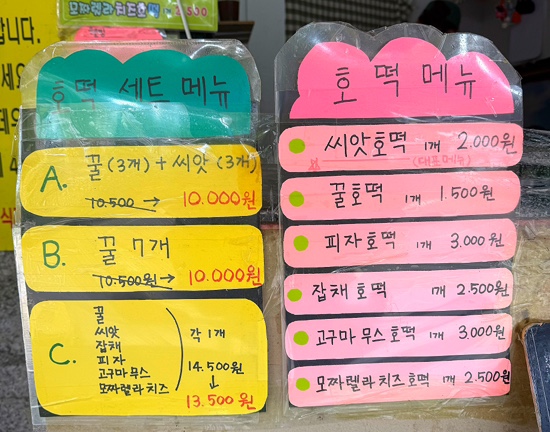 모짜렐라치즈호떡 2,500
호떡 세트 메뉴
A. 꿀(3개)+씨앗(3개)
10.500→ 10.000원
B. 꿀 7개
10.500원→ 10.000원
C.
꿀
씨앗
잡채
피자
고구마무스
모짜렐라치즈
각 1개
14.500원
↓
13.500원
호떡메뉴
씨앗호떡 1개 2.000원
(대표메뉴)
꿀호떡 1개 1.500원
피자호떡 1개 3.000원
잡채호떡 1개 2.500원
고구마무스호떡 1개 3.000원
모짜렐라치즈호떡 1개 2.500원